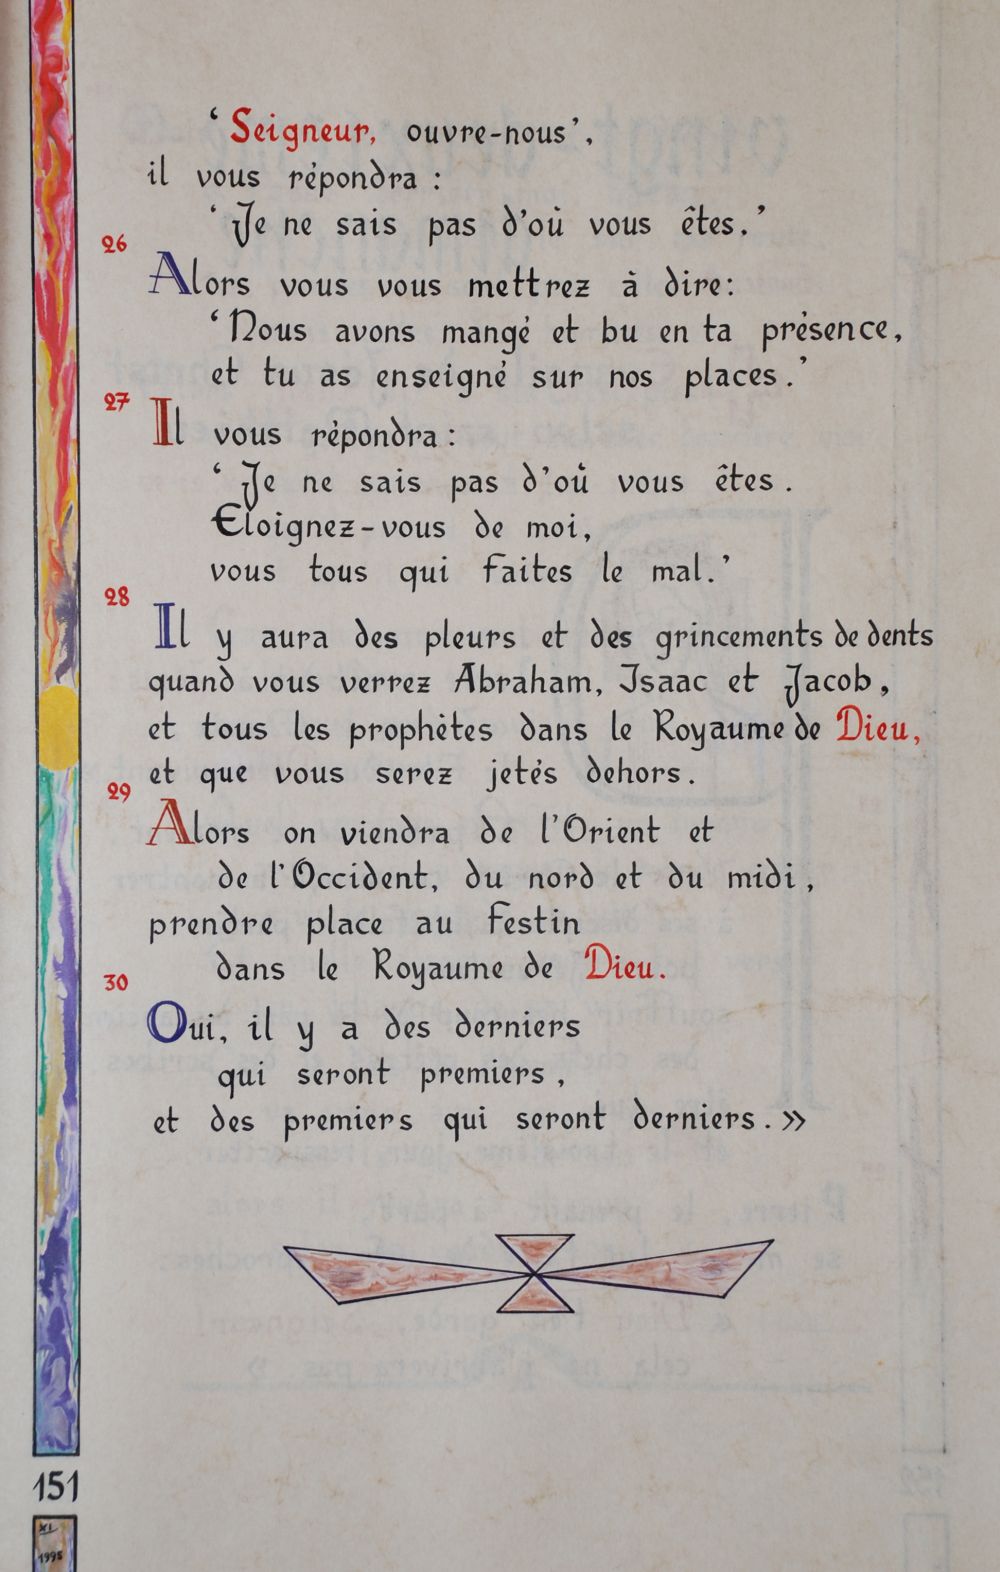 ‘Seigneur, ouvre-nous’,
il vous répondra :
‘Je ne sais pas d’où vous êtes.’
26
Alors vous vous mettrez à dire:
‘Nous avons mangé et bu en ta présence,
et tu as enseigné sur nos places.’
27
Il vous répondra :
‘Je ne sais pas d’où vous êtes.
Eloignez-vous de moi,
vous tous qui faites le mal.’
28
Il y aura des pleurs et des grincements de dents
quand vous verrez Abraham, Isaac et Jacob,
et tous les prophètes dans le Royaume de Dieu,
et que vous serez jetés dehors.
29
Alors on viendra de l’Orient et
de l’Occident, du nord et du midi,
prendre place au festin
dans le Royaume de Dieu.
30
Oui, il y a des derniers
qui seront premiers,
et des premiers qui seront derniers.»
151
XI
1995